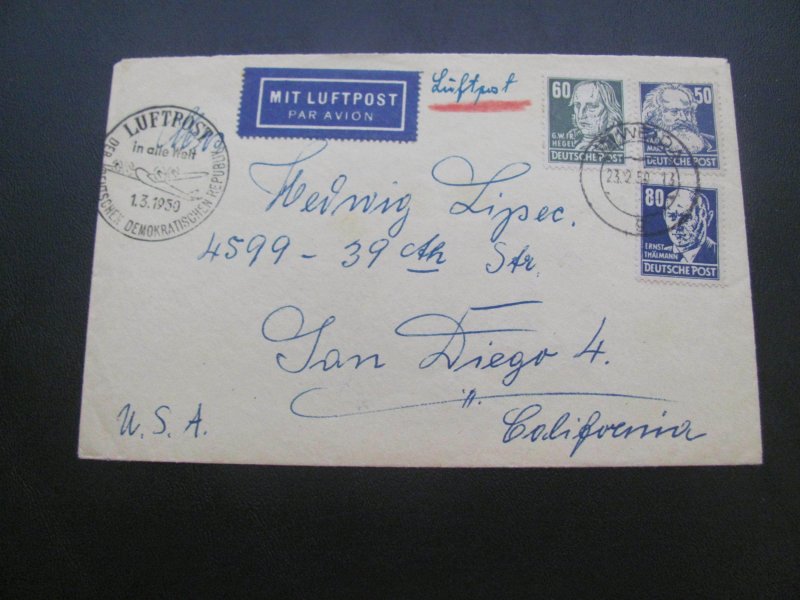 LUFTPOST
in alle Welt
1.3.1950
DER DEUTSCHEN DEMOKRATISCHEN REPUBLIK
MIT LUFTPOST
PAR AVION
Luftpost
60
G.W.FR.
HEGEL
DEUTSCHE POST
50
KARL
MARX
DEUTSCHE POST
23.2.50 13
80
ERNST
THÄLMANN
DEUTSCHE POST
Hedwig Lipec.
4599 - 39 th Str.
San Diego 4.
California
U. S. A.